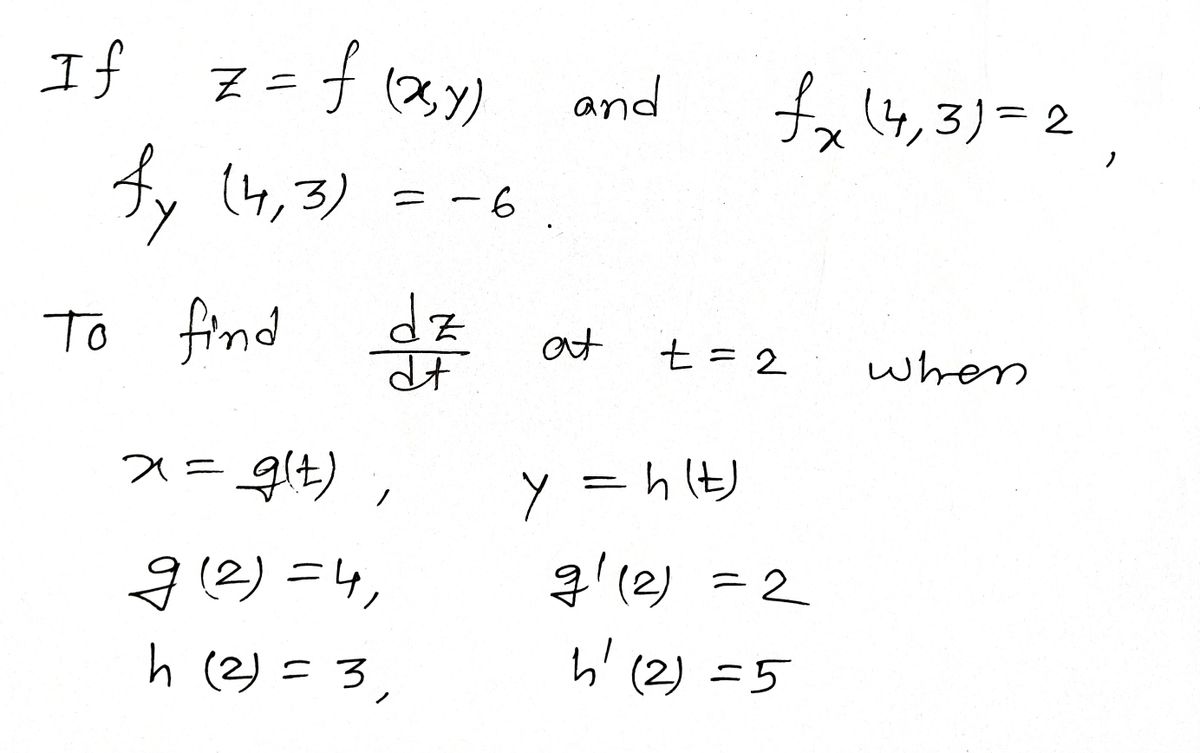 If z = f (x,y) and fₓ (4,3) = 2,
f_y (4,3) = -6.
To find dz/dt at t = 2 when
x = g(t), y = h(t)
g (2) = 4, g'(2) = 2
h (2) = 3, h' (2) = 5